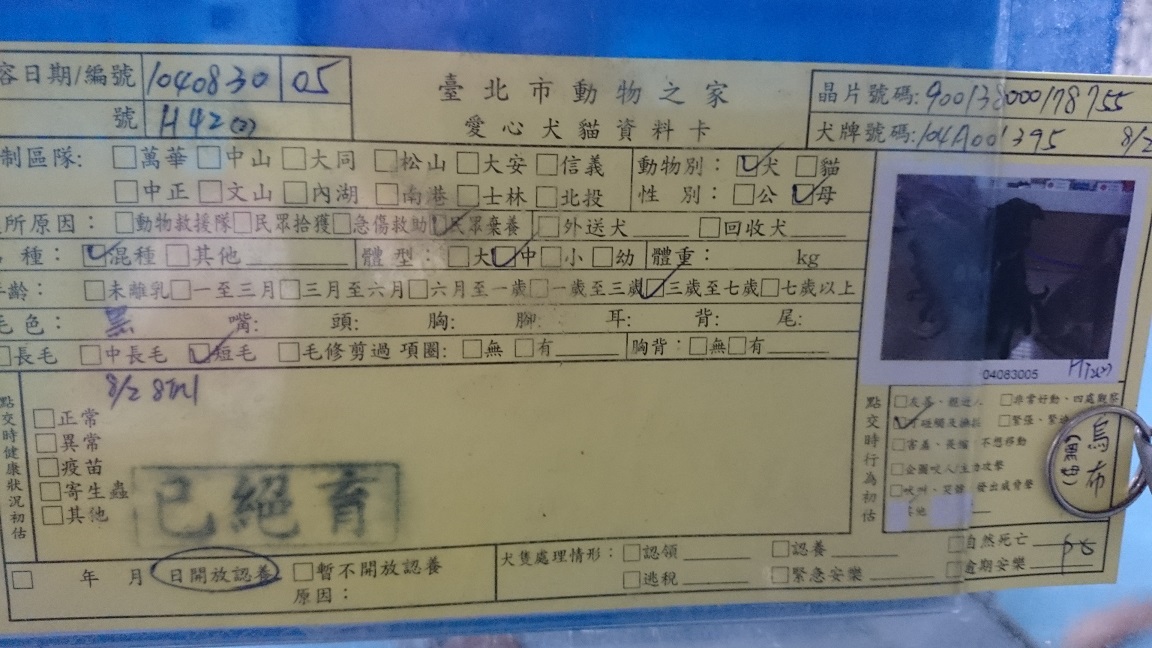 容日期/編號 1040830 05
號 H42(2)
臺北市動物之家
愛心犬貓資料卡
晶片號碼:900138000178755
犬牌號碼:04A001395 8/2
制區隊: □萬華□中山□大同□松山□大安□信義
□中正□文山□內湖□南港□士林□北投
動物別:☑犬□貓
性別:□公☑母
所原因:□動物救援隊□民眾拾獲□急傷救助☑民眾棄養□外送犬 □回收犬
種:☑混種□其他 體型:□大☑中□小□幼 體重: kg
年齡: □未離乳□一至三月□三月至六月□六月至一歲□一歲至三歲☑三歲至七歲□七歲以上
毛色:黑 嘴: 頭: 胸: 腳: 耳: 背: 尾:
□長毛 □中長毛 ☑短毛 □毛修剪過 項圈:□無 □有 胸背:□無□有
04083005
點交時健康狀況初估
8/2
□正常
□異常
□疫苗
□寄生蟲
□其他
已絕育
點交時行為初估
□友善、親近人 □非常好動、四處觀察
☑可碰觸及擁抱 □緊張、緊迫
□害羞、畏縮、不想移動
□企圖咬人/主力攻擊
□吠叫、哭嚎、發出威脅聲
其他
烏布
□ 年 月 日開放認養 □暫不開放認養
原因:
犬隻處理情形:□認領 □認養 □自然死亡
□逃稅 □緊急安樂 □逾期安樂